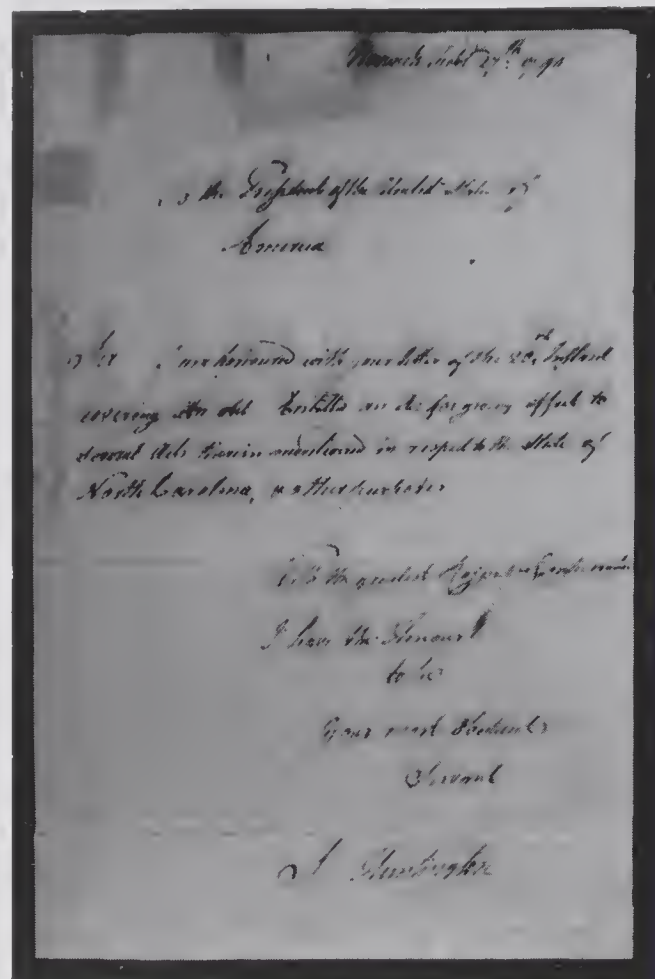 Norwich Febr 27th 1790
To the President of the United States of
America
Sir I am honoured with your letter of the 20th Instant
covering An Act Entitled an Act for giving effect to
several Acts therein mentioned in respect to the State of
North Carolina, & other purposes
With the greatest Respect & Consideration
I have the Honour
to be
Your most Obedient
Servant
S Huntington